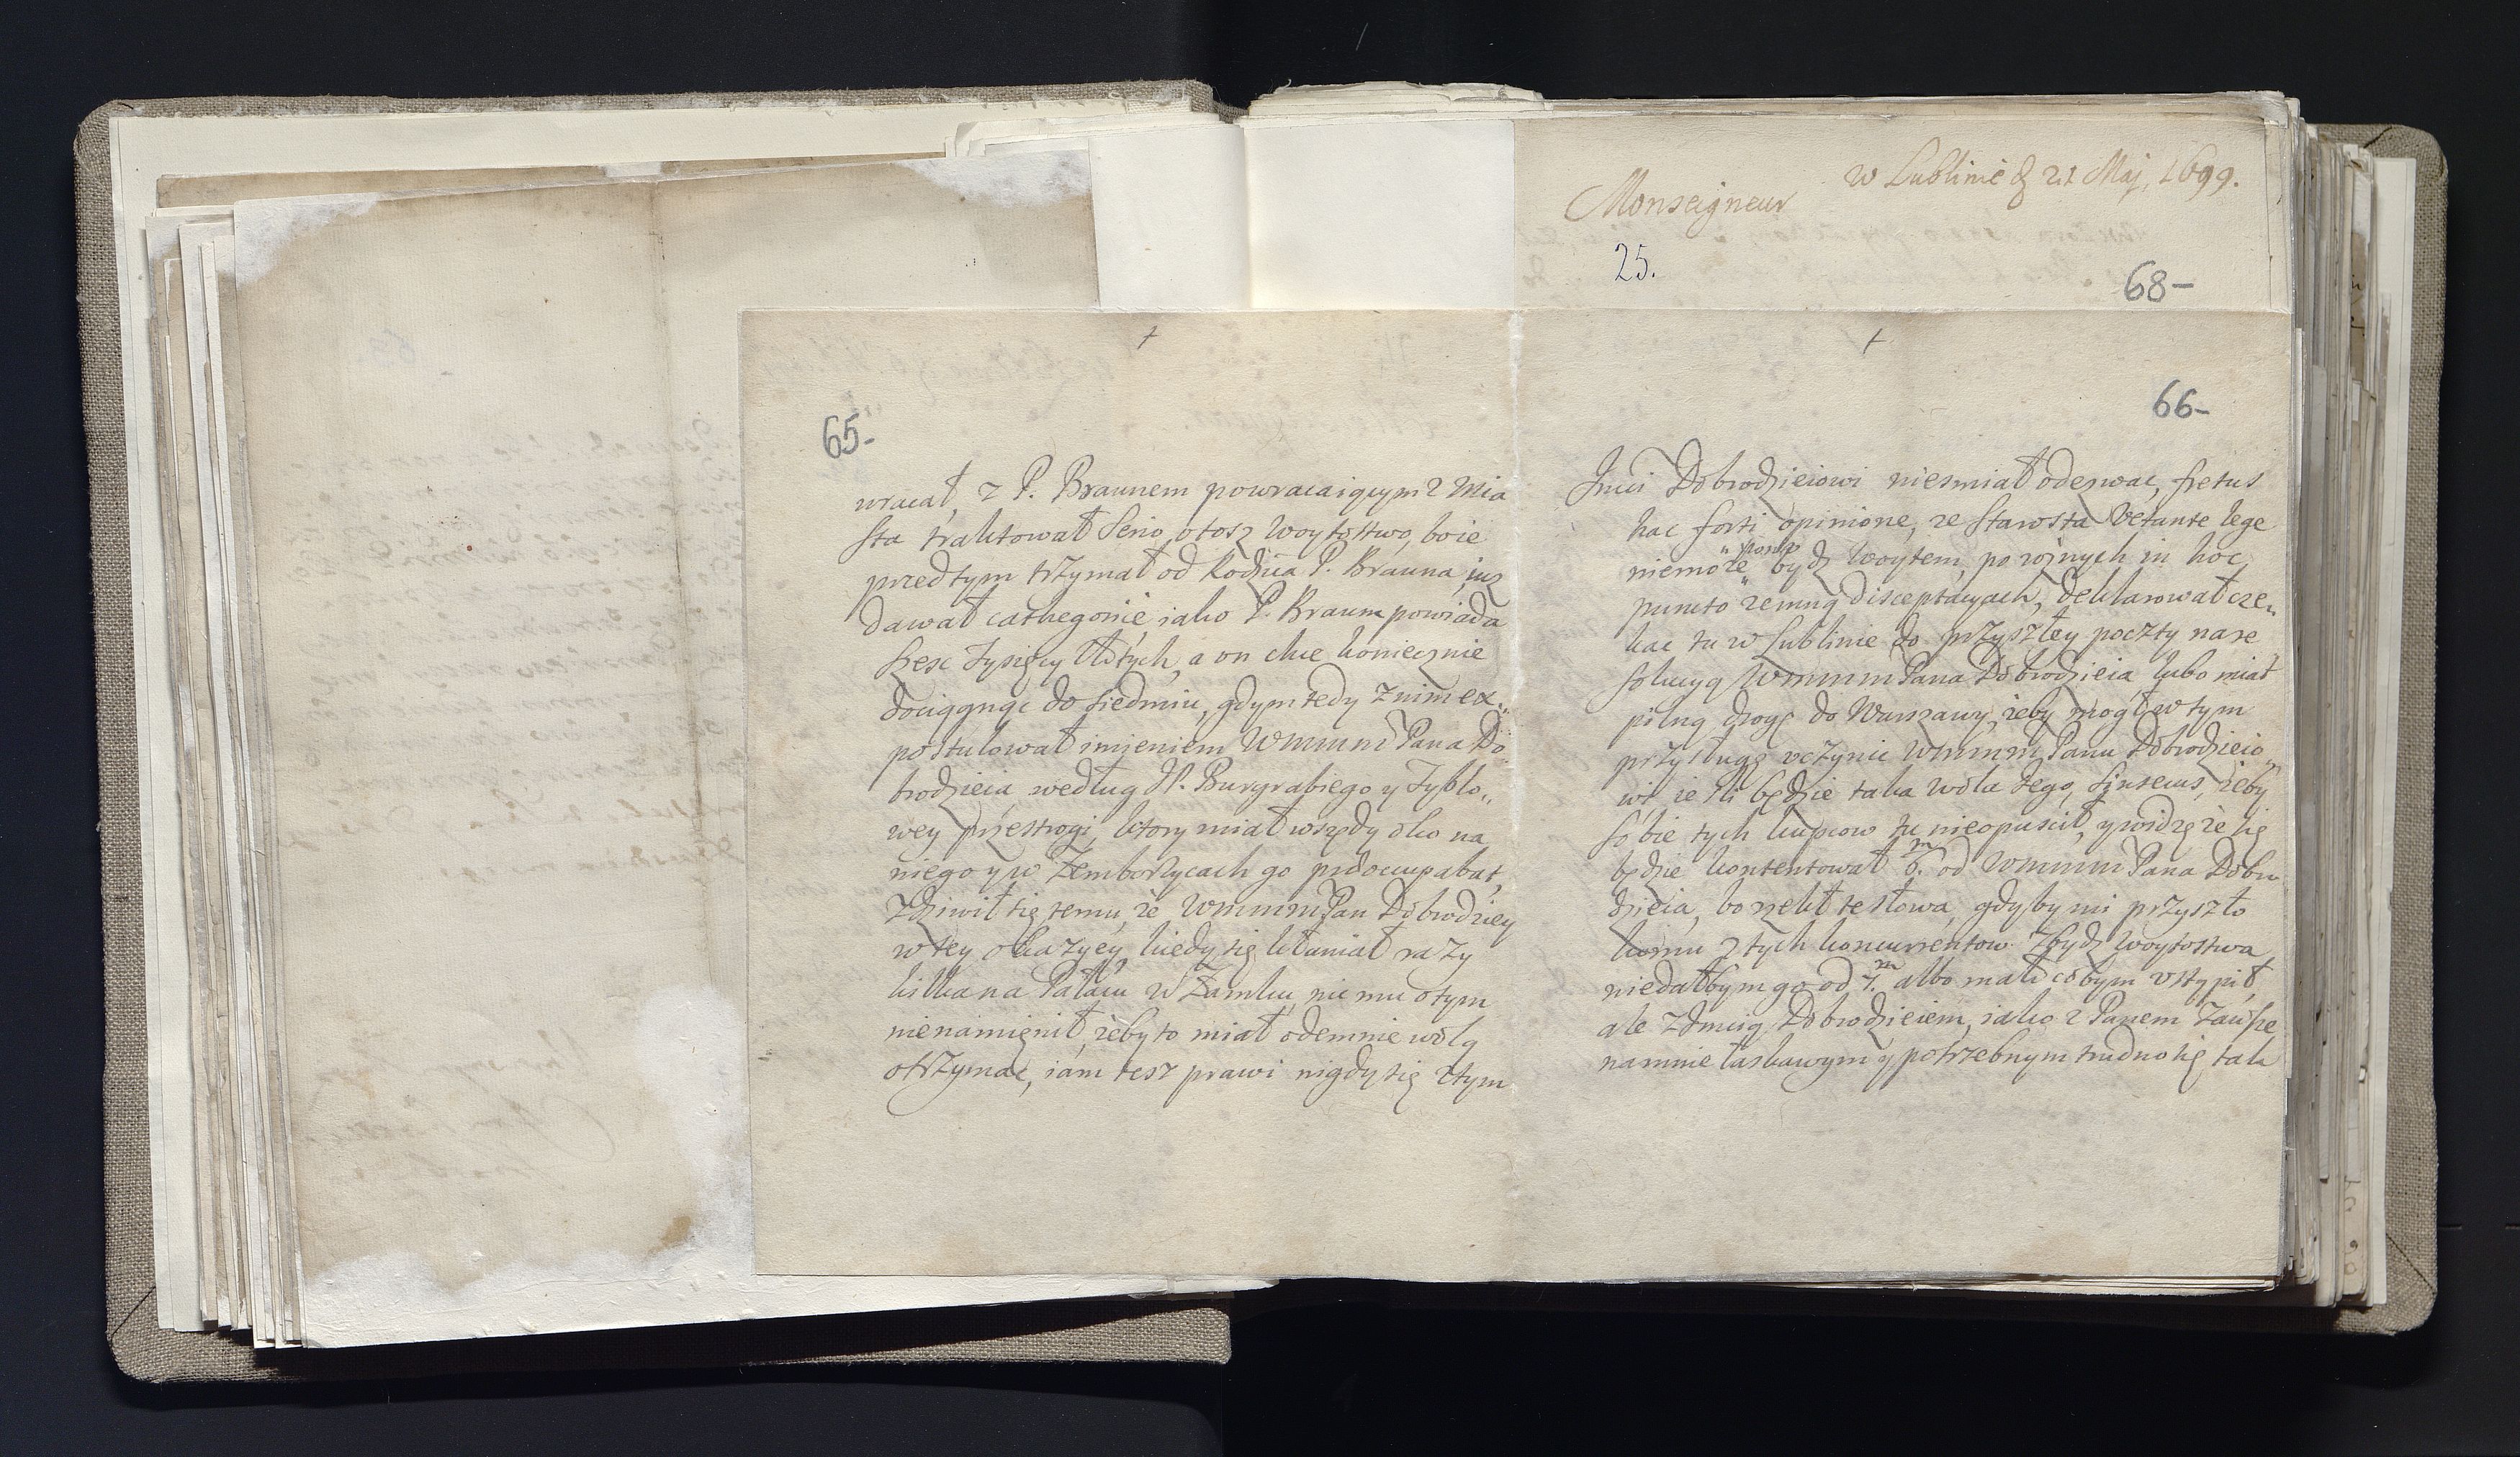 w Lublinie d 21 Maj, 1699.
Monseigneur
25.
68-
65-
wracał, z P. Braunem powracaiącym z Mia
sta traktował serio, o tosz Woytostwo, bo ie
przedtym trzymał od Rodzica P. Brauna, iuz
dawał cathegorie iako P. Braun powiada
szesc Tysięcy Złłtych, a on chce koniecznie
dociągnąc do siedmiu, gdym tedy z nim ex„
postulował imieniem WMMM Pana Do„
brodzieia według JP. Burgrabiego y Tyklo„
wey przestrogi, ktory miał wszędy oko na
niego y w Zemborzycach go præoccupabat,
Zdziwił się temu, że WMMM Pan Dobrodziey
w tey okazyey, kiedy się kłaniał razy
kilka na Pałacu w Zamku, nic mu o tym
nie namienił, żeby to miał odemnie wolą
otrzymac, iam tesz prawi nigdy się z tym
66-
Jmci Dobrodzieiowi niesmiał odezwac, fretus
hac forti opinione, ze Starosta vetante lege
niemoże bydz Woytem, po rożnych in hoc
puncto zemną disceptacyach, deklarował cze„
kac tu w Lublinie do przyszłey poczty na re
solucyą WMMM Pana Dobrodzieia lubo miał
pilną drogę do Warszawy, żeby mogł w tym
przysługę vczynic WMMM Panu Dobrodzieio„
wi ie sli będzie taka wola Jego, sinsecus, żeby
sobie tych kupcow tu nieopuscił, y widzę że się
będzie kontentował 6.m od WMMM Pana Dobro
dzieia, bo rzekł te słowa, gdyby mi przyszło
komu z tych koncurrentow zbydz Woytostwa
niedałbym go od 7.m albo mało cobym vstąpił,
ale z Jmcią Dobrodzieiem, iako z Panem Zawsze
na mnie łaskawym y potrzebnym trudno się tak